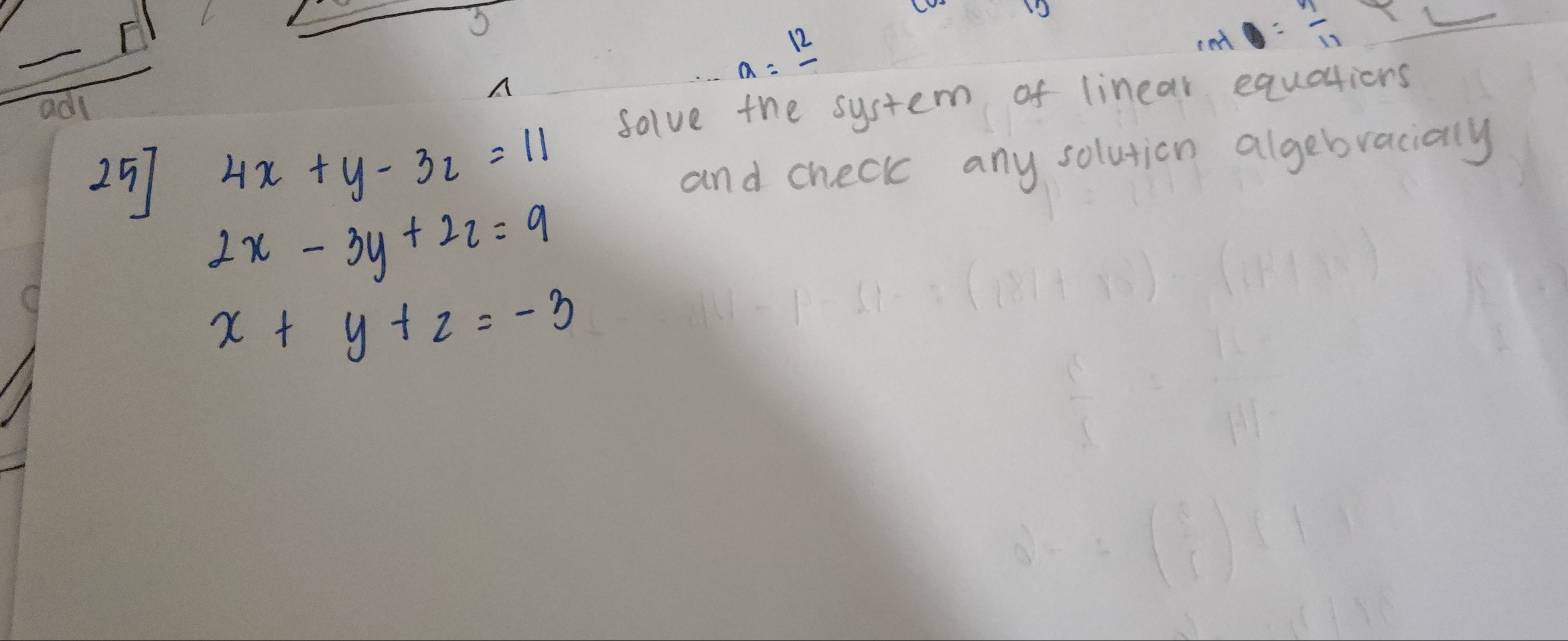 5
cos
15
a = 12
adj
25] 4x + y - 3z = 11
2x - 3y + 2z = 9
x + y + z = -3
solve the system of linear equations
and check any solution algebracially